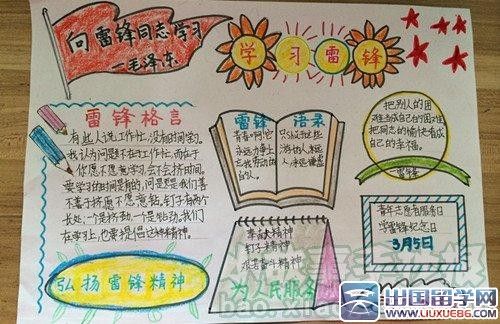 向雷锋同志学习
—毛泽东
学习雷锋
雷锋格言
有些人说工作忙,没有时间学习。
我认为问题不在工作忙,而在于
你愿不愿意学习,会不会挤时间。
要学习的时间是有的,问题是我们善
不善于挤,愿不愿意钻。钉子有两个
长处:一个是挤劲,一个是钻劲。我们
在学习上,也要提倡这种精神。
弘扬雷锋精神
雷锋 语录
青春啊,它
永远力争上
的人。
把别人的困
难当成自己的困难
把同志的愉快看成
自己的幸福。
奉献精神
钉子精神
艰苦奋斗精神
为人民服务
青年志愿者服务日
学雷锋纪念日
3月5日
出国留学网
www.liuxue86.com